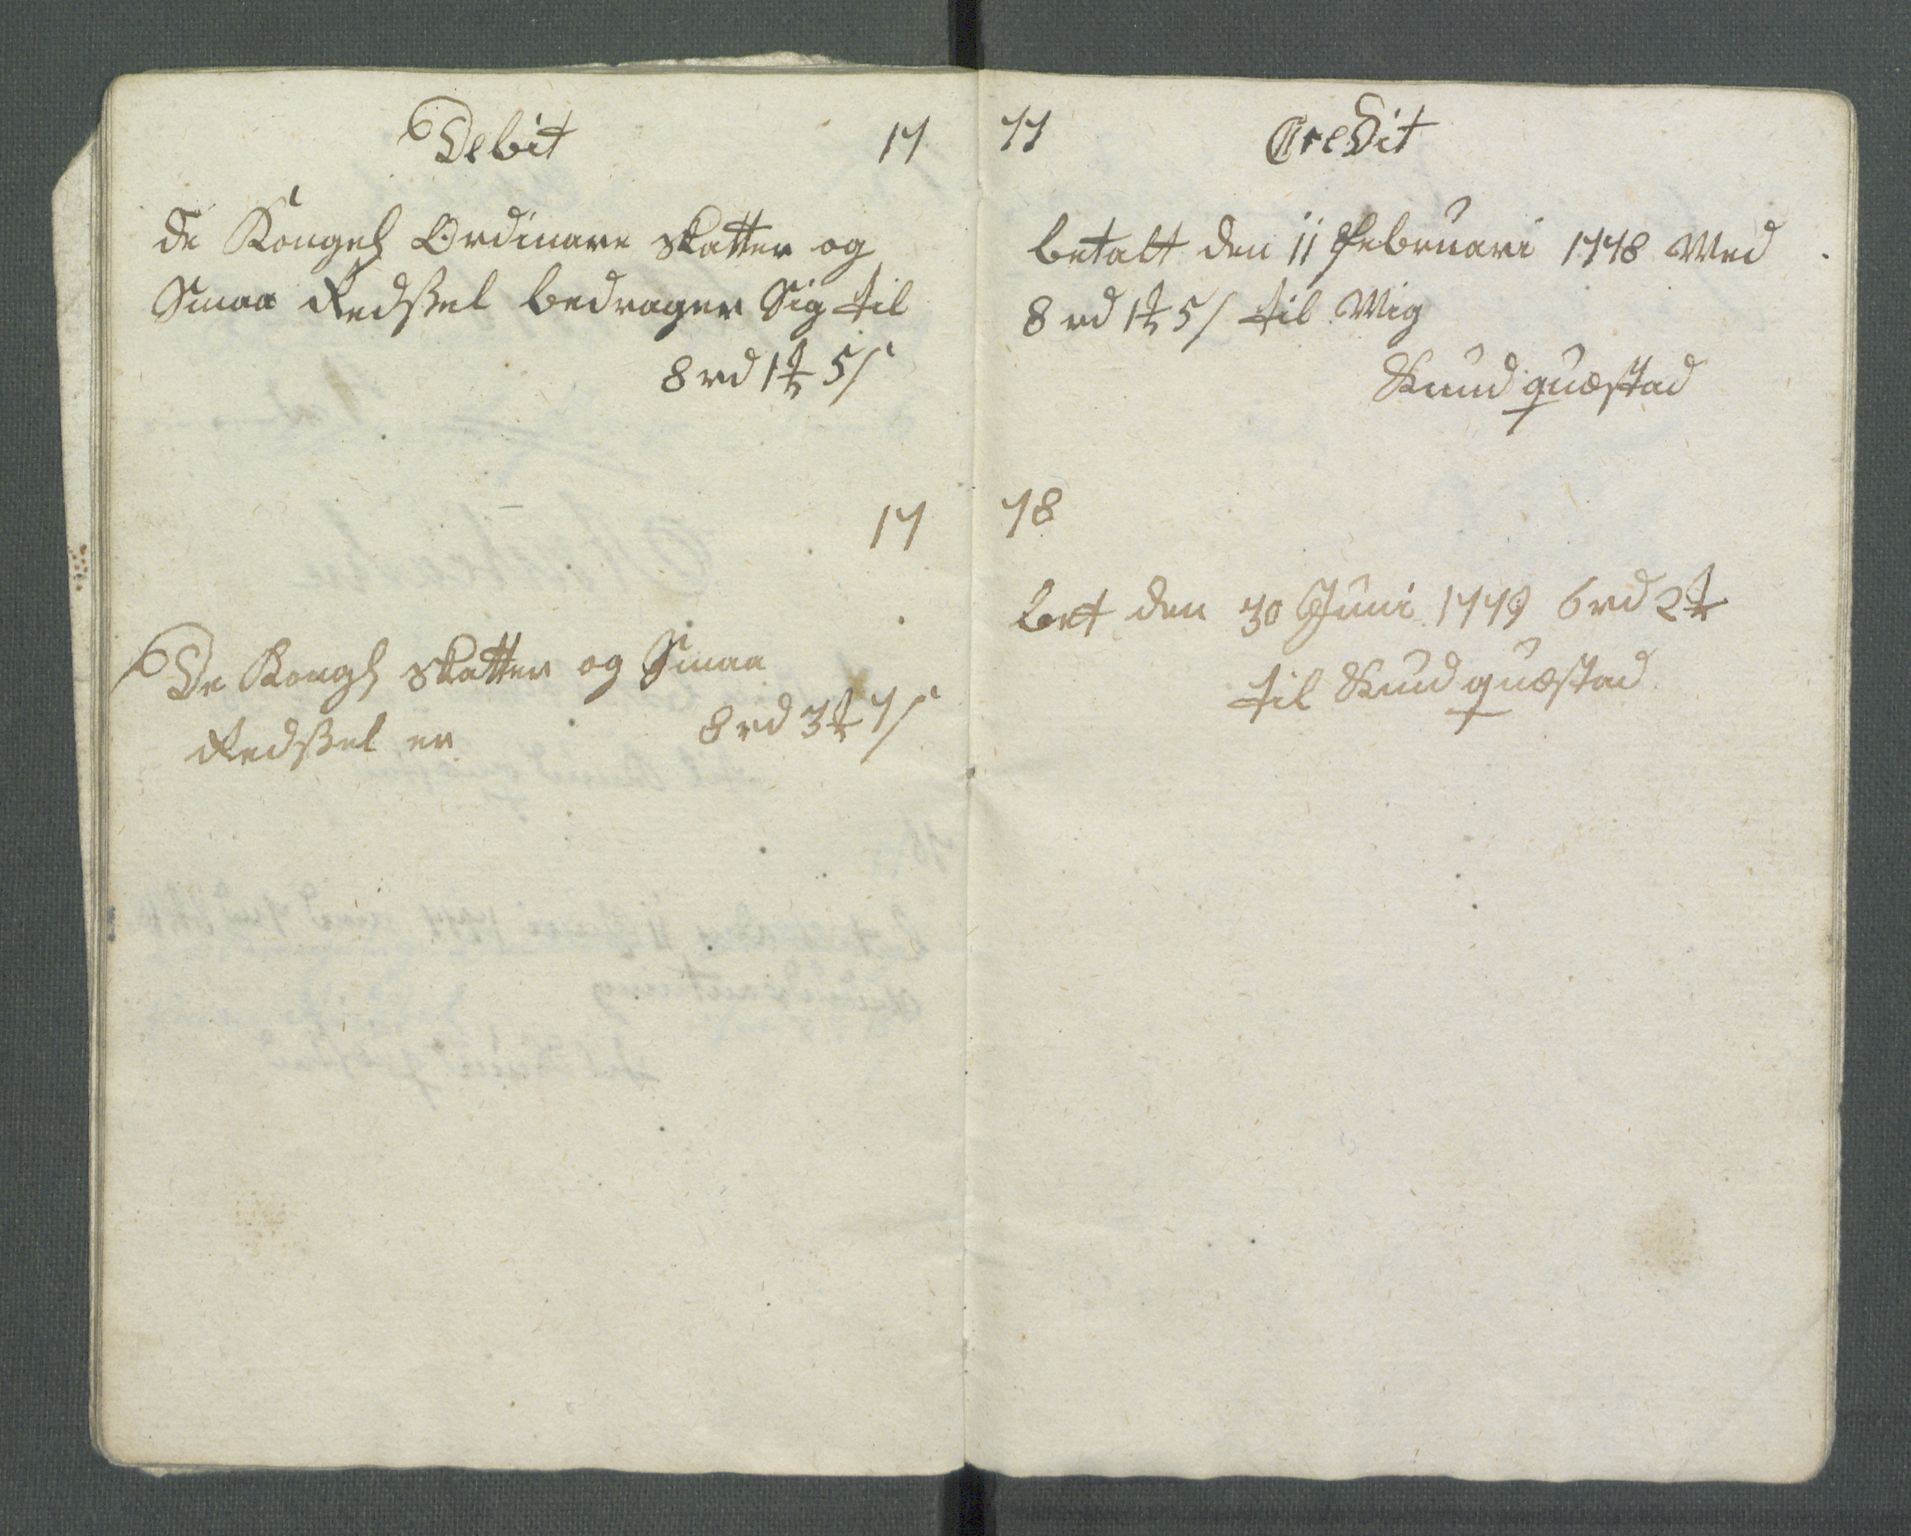 Debit 17
de Kongel Ordinare skatter og
Smaa Redssel bedrager Sig til
8 rd 1 ort 5 s
17
De Kongl skatter og Smaa
Redssel er 8 rd 3 ort 7 s
77 Credit
betalt den 11 Februari 1778 Med
8 rd 1 ort 5 s til Mig
Knud quæstad
78
bet den 30 Juni 1779 6 rd 2 ort
til Knud quæstad